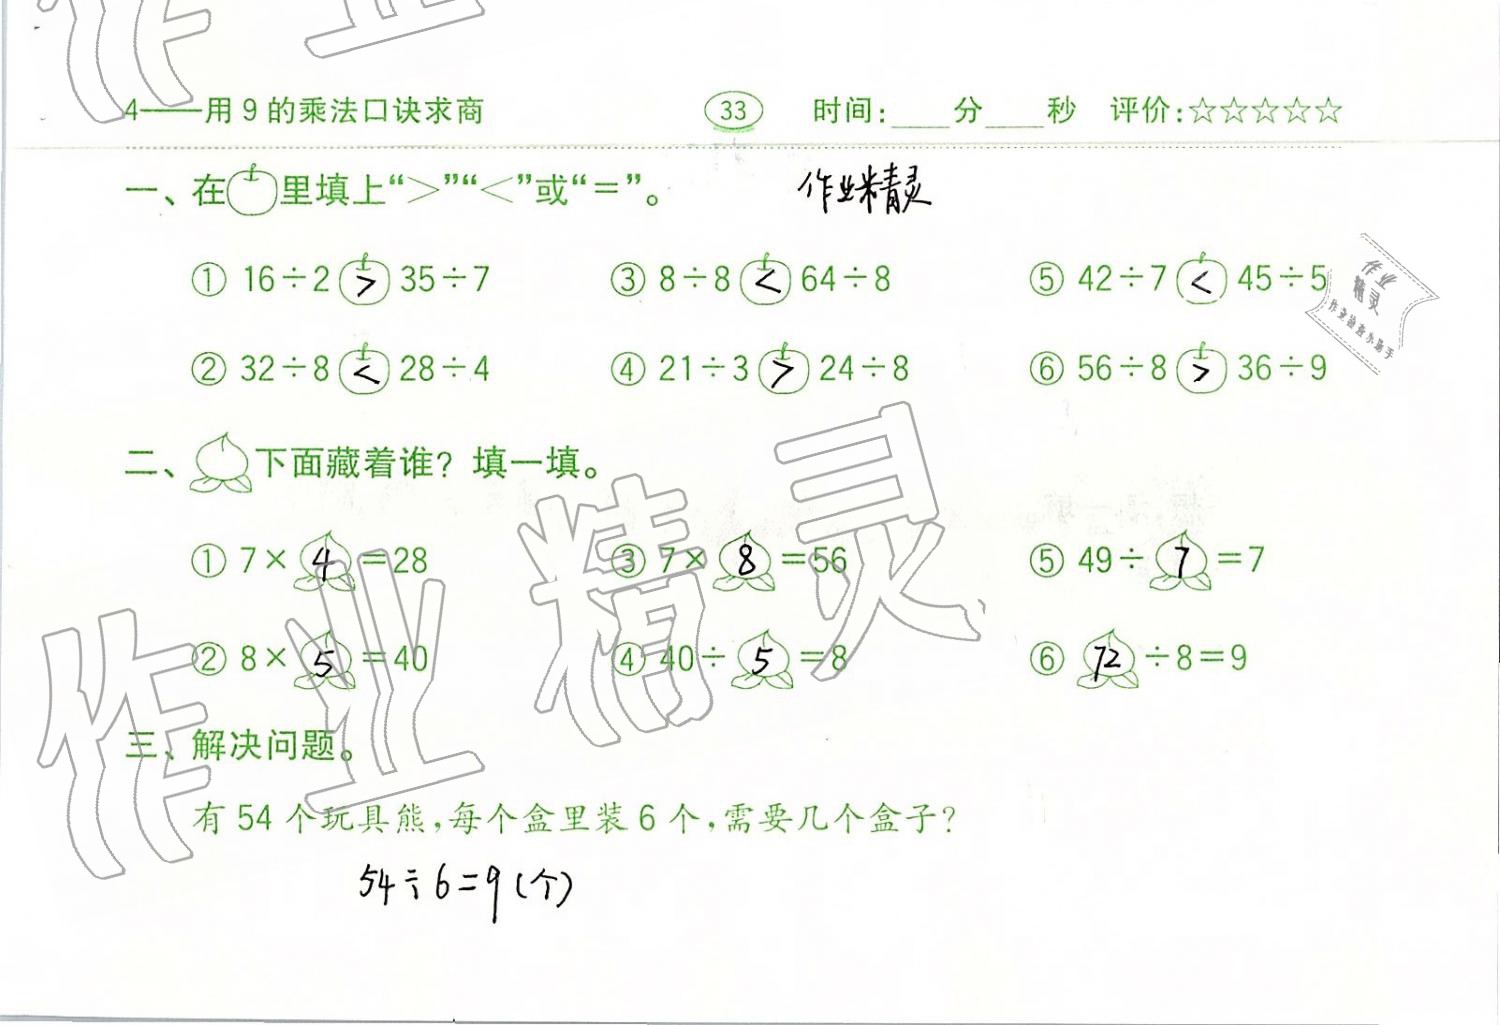 4——用9的乘法口诀求商 33 时间:____分____秒 评价:☆☆☆☆☆
一、在○里填上“>”“<”或“=”。 作业精灵
① 16÷2 > 35÷7 ③ 8÷8 < 64÷8 ⑤ 42÷7 < 45÷5
② 32÷8 < 28÷4 ④ 21÷3 > 24÷8 ⑥ 56÷8 > 36÷9
作业
精灵
作业检查小助手
二、下面藏着谁？填一填。
① 7× 4 =28 ③ 7× 8 =56 ⑤ 49÷ 7 =7
② 8× 5 =40 ④ 40÷ 5 =8 ⑥ 72 ÷8=9
作业精灵
三、解决问题。
有54个玩具熊，每个盒里装6个，需要几个盒子？
54÷6=9(个)